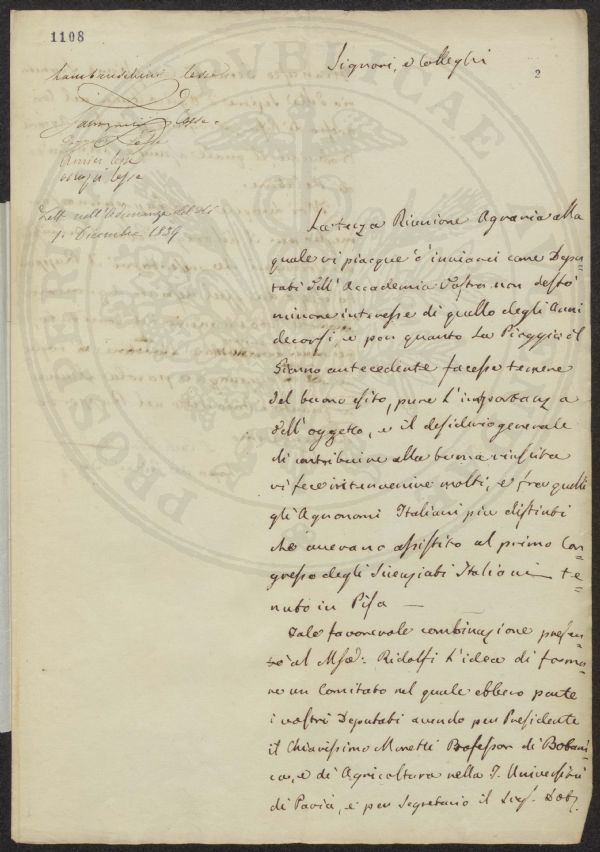 1108
Signori, e Colleghi
2
Lambruschini lesse
lesse
lesse
lesse
Lett. nell'Adunanza del dì
1. Dicembre 1839
La terza Riunione Agraria alla
quale vi piacque d'inviarci come Depu=
tati dell'Accademia Vostra non destò
minore interesse di quello degli Anni
decorsi, e per quanto la Pioggia il
Giorno antecedente facesse temere
del buon esito, pure l'importanza
dell'oggetto, e il desiderio generale
di contribuire alla buona riuscita
vi fece intervenire molti, e fra quelli
gli Agronomi Italiani piu distinti
che avevano assistito al primo Con=
gresso degli Scienziati Italiani te=
nuto in Pisa —
Tale favorevole combinazione presen=
tò al Ridolfi l'idea di forma=
re un Comitato nel quale ebbero parte
i vostri Deputati avendo per Presidente
il Chiarissimo Moretti Professor di Botani=
ca, e di Agricoltura nella I. Università
di Pavia, e per Segretario il Sigr. Dott.
PVBLICAE
PROSPERITATIS